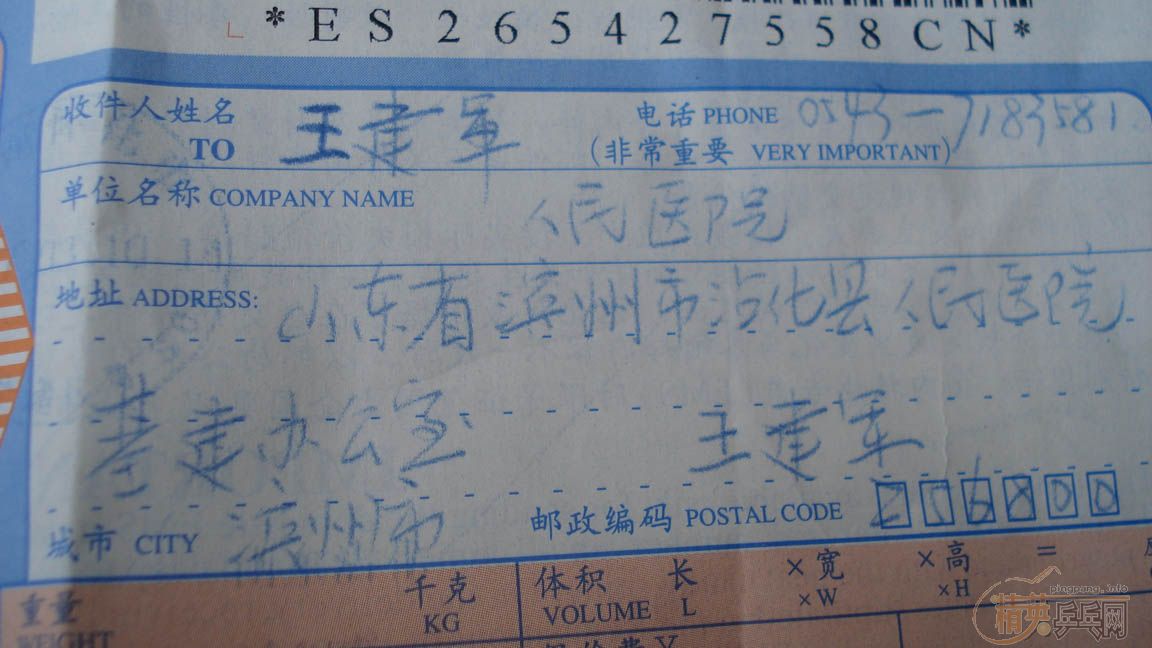 *ES265427558CN*
收件人姓名 王建军 电话 PHONE 0543-7183581
TO (非常重要 VERY IMPORTANT)
单位名称 COMPANY NAME 人民医院
地址 ADDRESS: 山东省滨州市沾化县人民医院
基建办公室 王建军
城市 CITY 滨州市 邮政编码 POSTAL CODE 256800
重量 千克 体积 长 ×宽 ×高 =
WEIGHT KG VOLUME L ×W ×H
pingpang.info
精英乒乓网